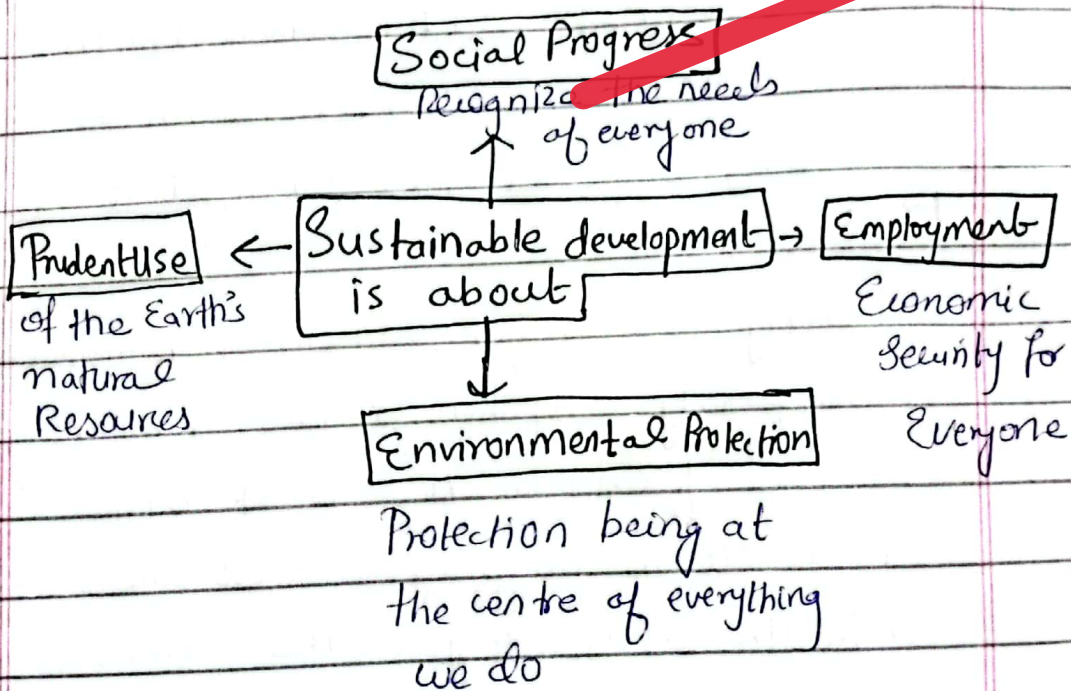 Social Progress
Recognize the needs
of everyone
Prudent Use
of the Earth's
natural
Resources
Sustainable development
is about
Employment
Economic
Security for
Everyone
Environmental Protection
Protection being at
the centre of everything
we do